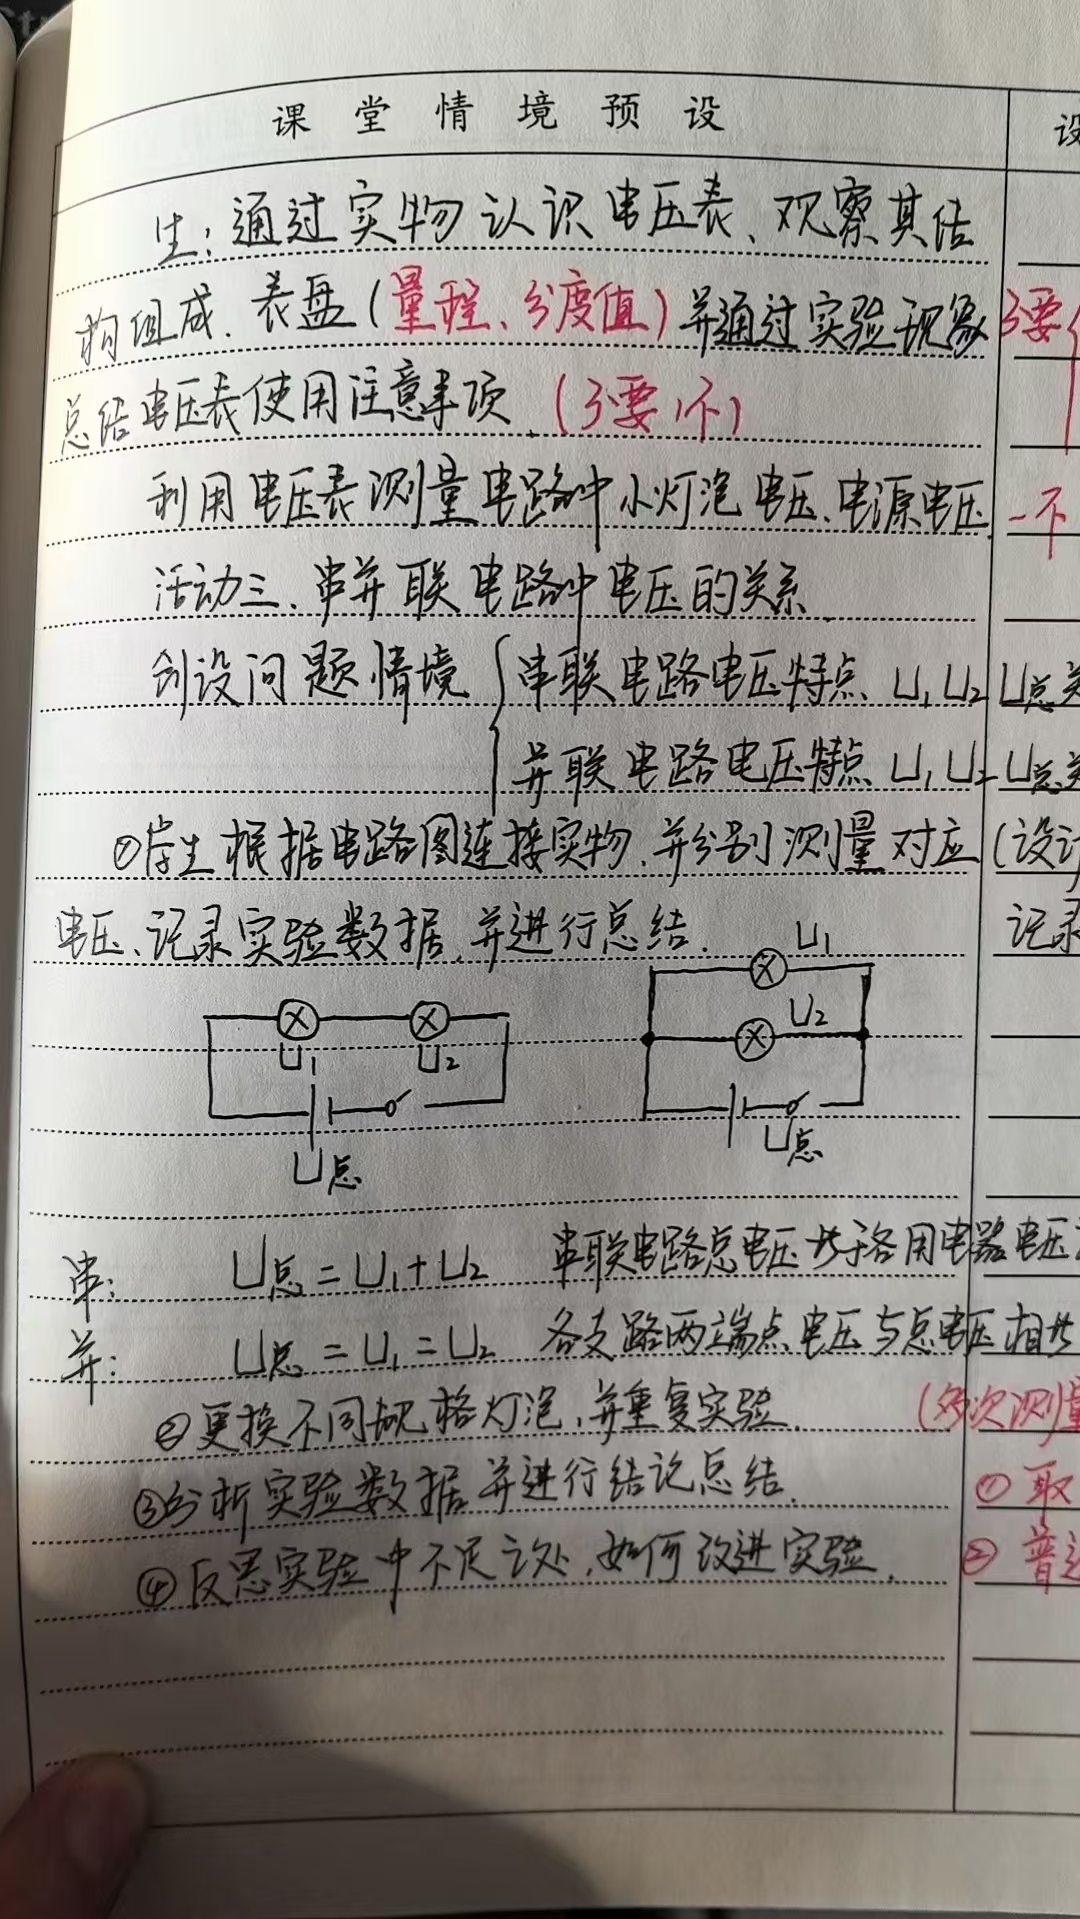 课堂情境预设 设
生：通过实物认识电压表、观察其结
构组成、表盘（量程、分度值）并通过实验现象 3要
总结电压表使用注意事项.（3要1不）
利用电压表测量电路中小灯泡电压、电源电压. 一不
活动三、串并联电路中电压的关系.
创设问题情境 { 串联电路电压特点 U₁ U₂ U总关
并联电路电压特点 U₁ U₂ U总关
①学生根据电路图连接实物，并分别测量对应（设计
电压、记录实验数据，并进行总结. 记录
U₁
U₂
U₁ U₂
U总
U总
串： U总=U₁+U₂ 串联电路总电压等于各用电器电压
并： U总=U₁=U₂ 各支路两端点电压与总电压相等
②更换不同规格灯泡，并重复实验. （多次测量
③分析实验数据并进行结论总结. ①取
④反思实验中不足之处，如何改进实验. ②普